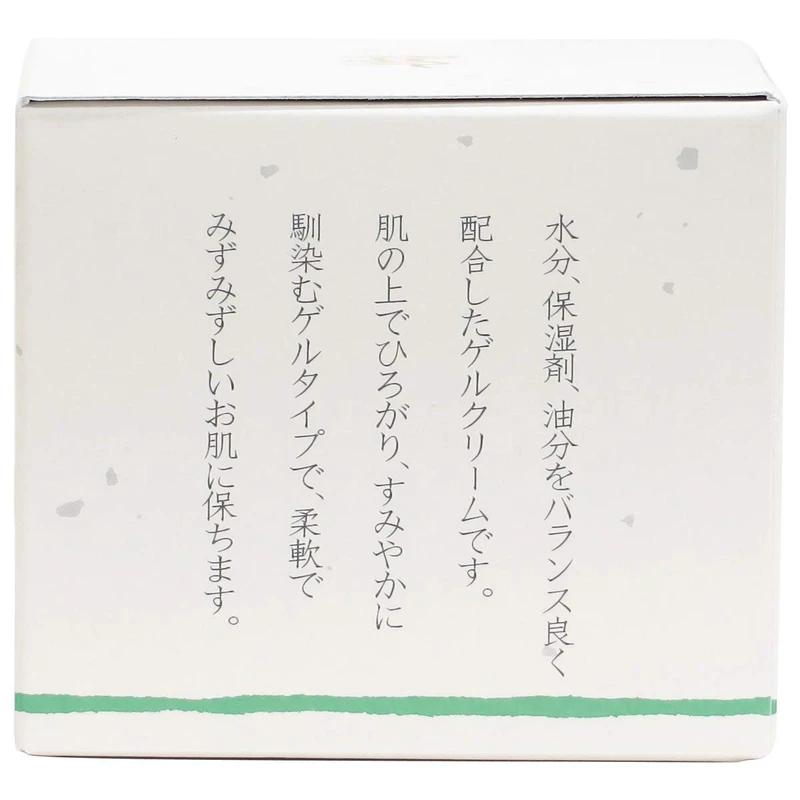 水分、保湿剤、油分をバランス良く
配合したゲルクリームです。
肌の上でひろがり、すみやかに
馴染むゲルタイプで、柔軟で
みずみずしいお肌に保ちます。